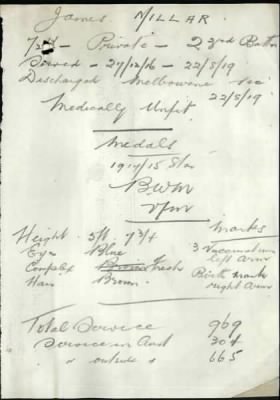 James MILLAR
Private - 23rd Battn
Served - 27/12/16 - 22/8/19
Discharged Melbourne Vic.
22/8/19
Medically Unfit
Medals
1914/15 Star
BWM
VM
Marks
Height 5ft 7 3/4 3 Vaccination
Eyes Blue left arm
Complex Fresh Birth mark
Hair Brown. right Arm
Total Service 969
Service in Aust 304
" outside " 665